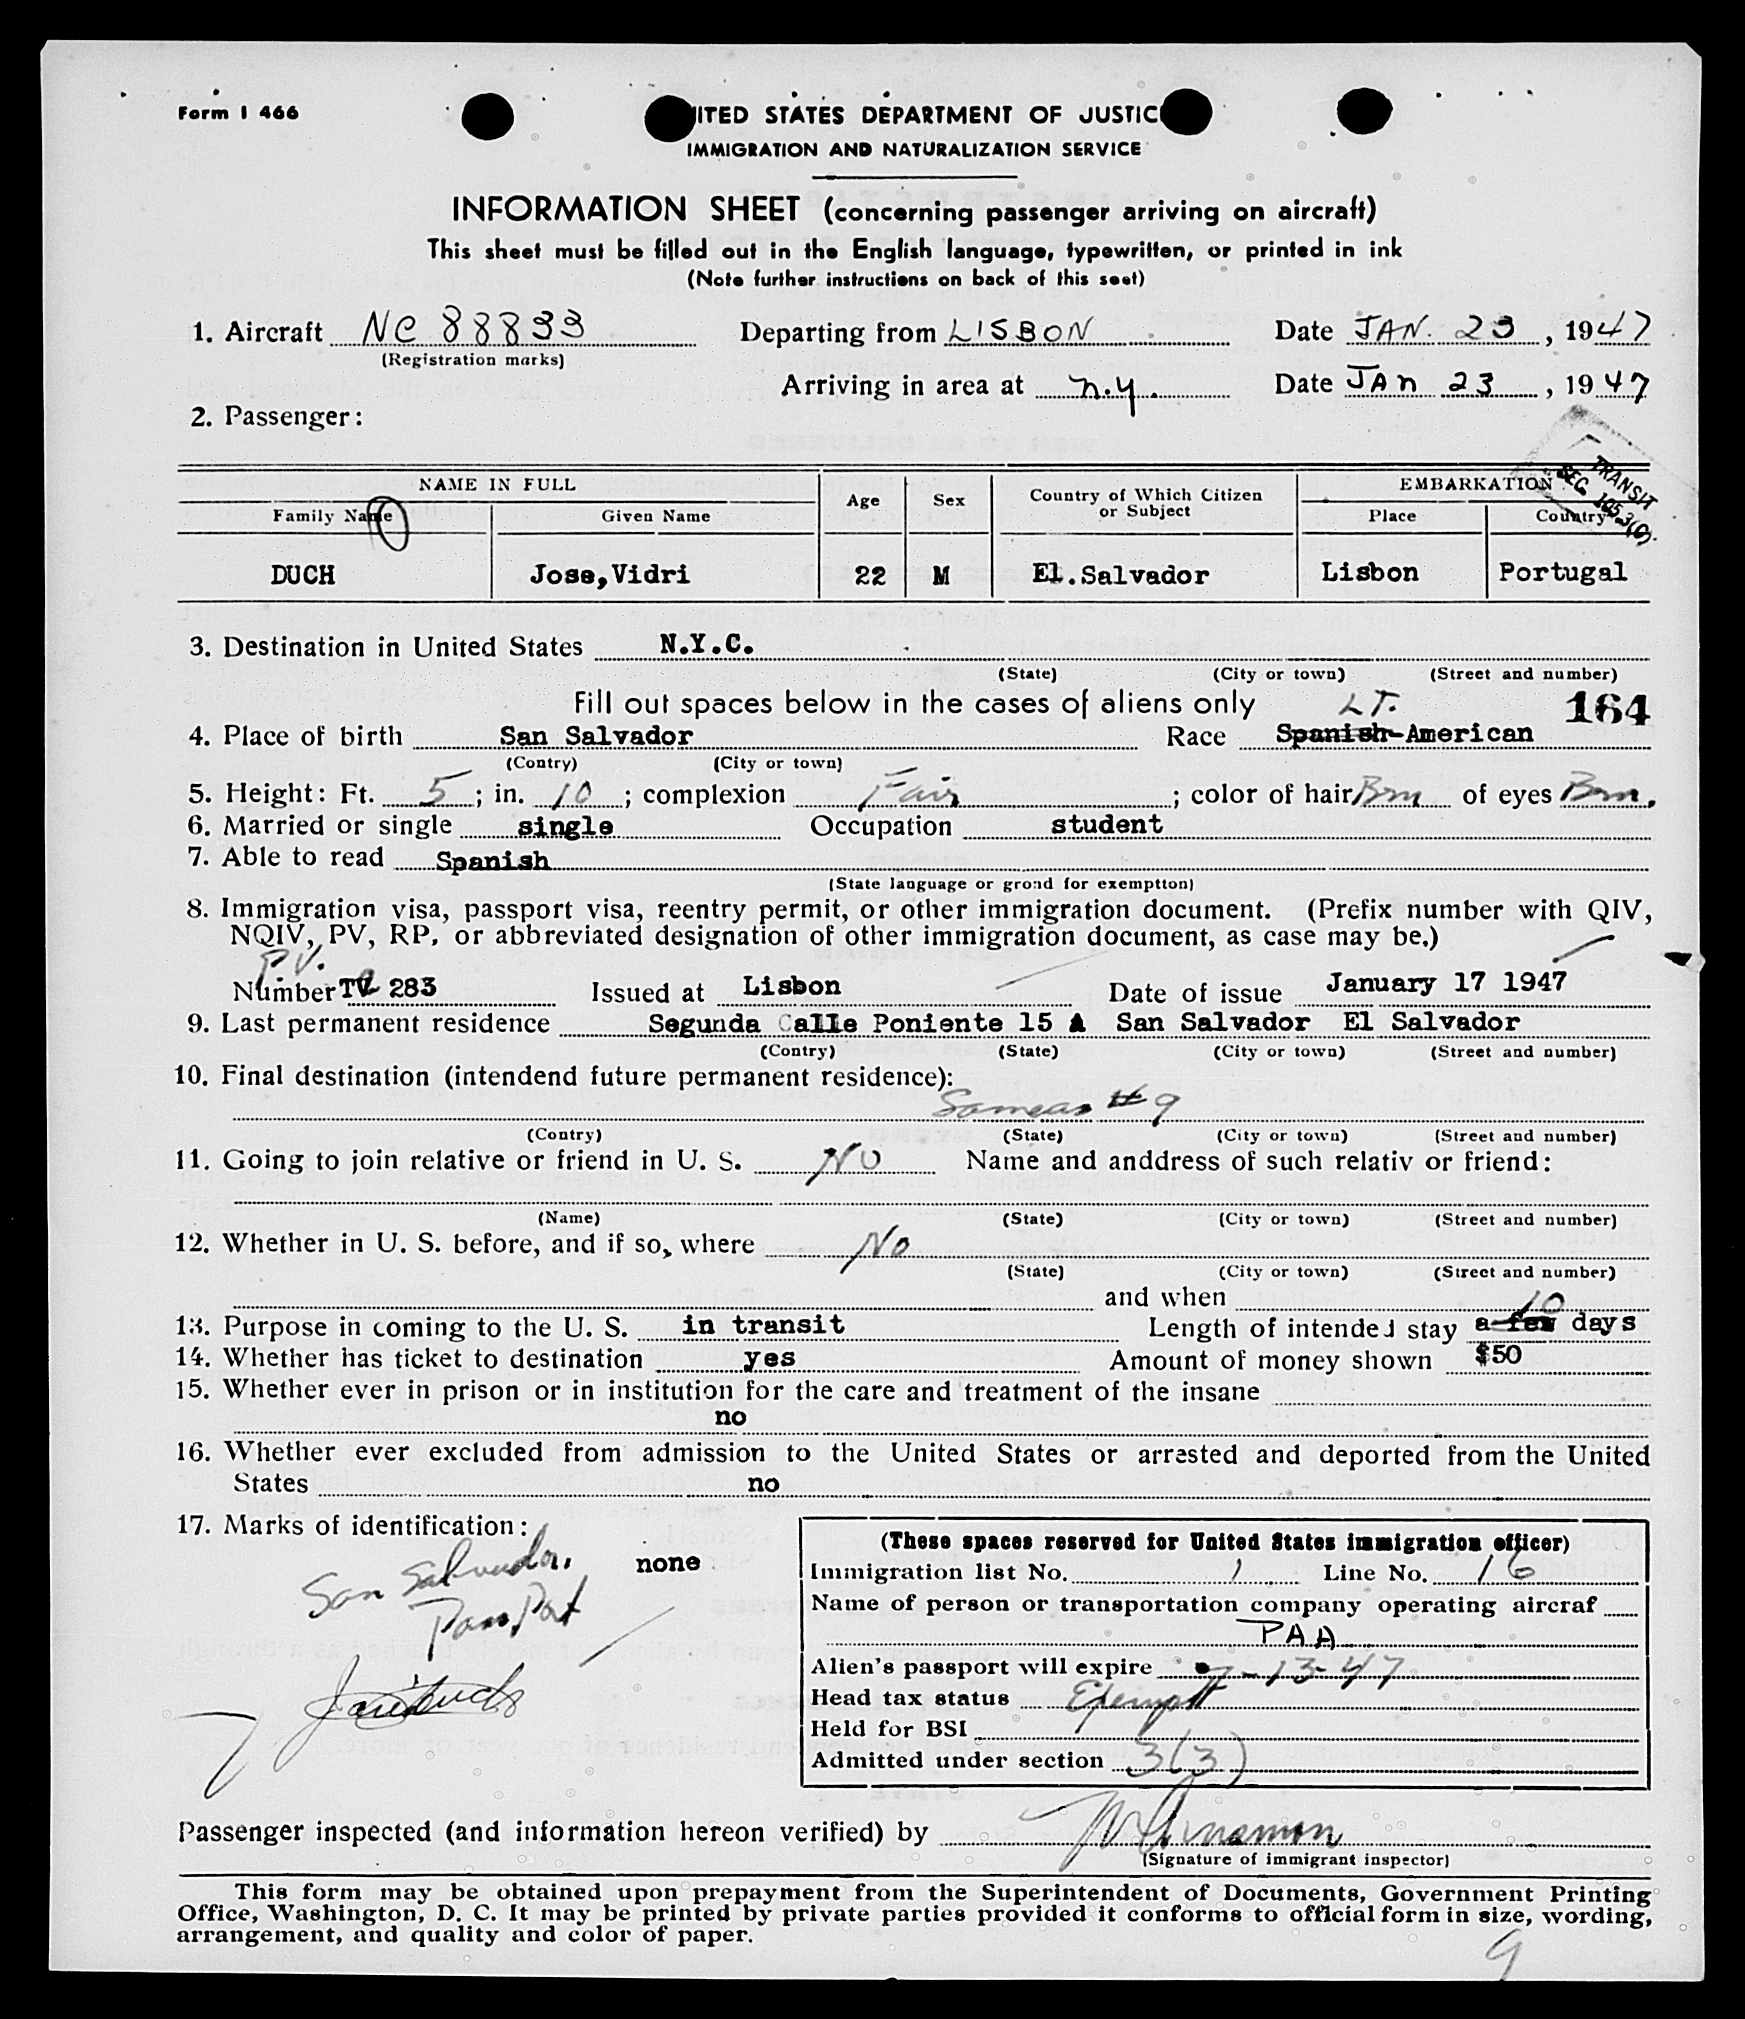 Form I 466
ITED STATES DEPARTMENT OF JUSTIC
IMMIGRATION AND NATURALIZATION SERVICE
INFORMATION SHEET (concerning passenger arriving on aircraft)
This sheet must be filled out in the English language, typewritten, or printed in ink
(Note further instructions on back of this seet)
1. Aircraft NC 88833 Departing from LISBON Date JAN. 23, 1947
(Registration marks)
Arriving in area at N.Y. Date JAN 23, 1947
2. Passenger:
TRANSIT
SEC. 105.3(C).
NAME IN FULL Age Sex Country of Which Citizen or Subject EMBARKATION
Family Name Given Name Place Country
DUCH Jose,Vidri 22 M El.Salvador Lisbon Portugal
3. Destination in United States N.Y.C.
(State) (City or town) (Street and number)
Fill out spaces below in the cases of aliens only LT. 164
4. Place of birth San Salvador Race Spanish-American
(Contry) (City or town)
5. Height: Ft. 5; in. 10; complexion Fair; color of hair Brn of eyes Brn.
6. Married or single single Occupation student
7. Able to read Spanish
(State language or grond for exemptton)
8. Immigration visa, passport visa, reentry permit, or other immigration document. (Prefix number with QIV,
NQIV, PV, RP, or abbreviated designation of other immigration document, as case may be.)
P.V.
Number 283 Issued at Lisbon Date of issue January 17 1947
9. Last permanent residence Segunda Calle Poniente 15 A San Salvador El Salvador
(Contry) (State) (City or town) (Street and number)
10. Final destination (intendend future permanent residence):
Same as #9
(Contry) (State) (City or town) (Street and number)
11. Going to join relative or friend in U. S. NO Name and anddress of such relativ or friend:
(Name) (State) (City or town) (Street and number)
12. Whether in U. S. before, and if so, where No
(State) (City or town) (Street and number)
and when
10
13. Purpose in coming to the U. S. in transit Length of intended stay a few days
14. Whether has ticket to destination yes Amount of money shown $50
15. Whether ever in prison or in institution for the care and treatment of the insane
no
16. Whether ever excluded from admission to the United States or arrested and deported from the United
States no
17. Marks of identification:
none
San Salvador.
PassPort
(These spaces reserved for United States immigration officer)
Immigration list No. 1 Line No. 16
Name of person or transportation company operating aircraf
PAA
Alien's passport will expire 7-13-47
Head tax status Exempt
Held for BSI
Admitted under section 3(3)
Passenger inspected (and information hereon verified) by
(Signature of immigrant inspector)
This form may be obtained upon prepayment from the Superintendent of Documents, Government Printing
Office, Washington, D. C. It may be printed by private parties provided it conforms to official form in size, wording,
arrangement, and quality and color of paper.
9